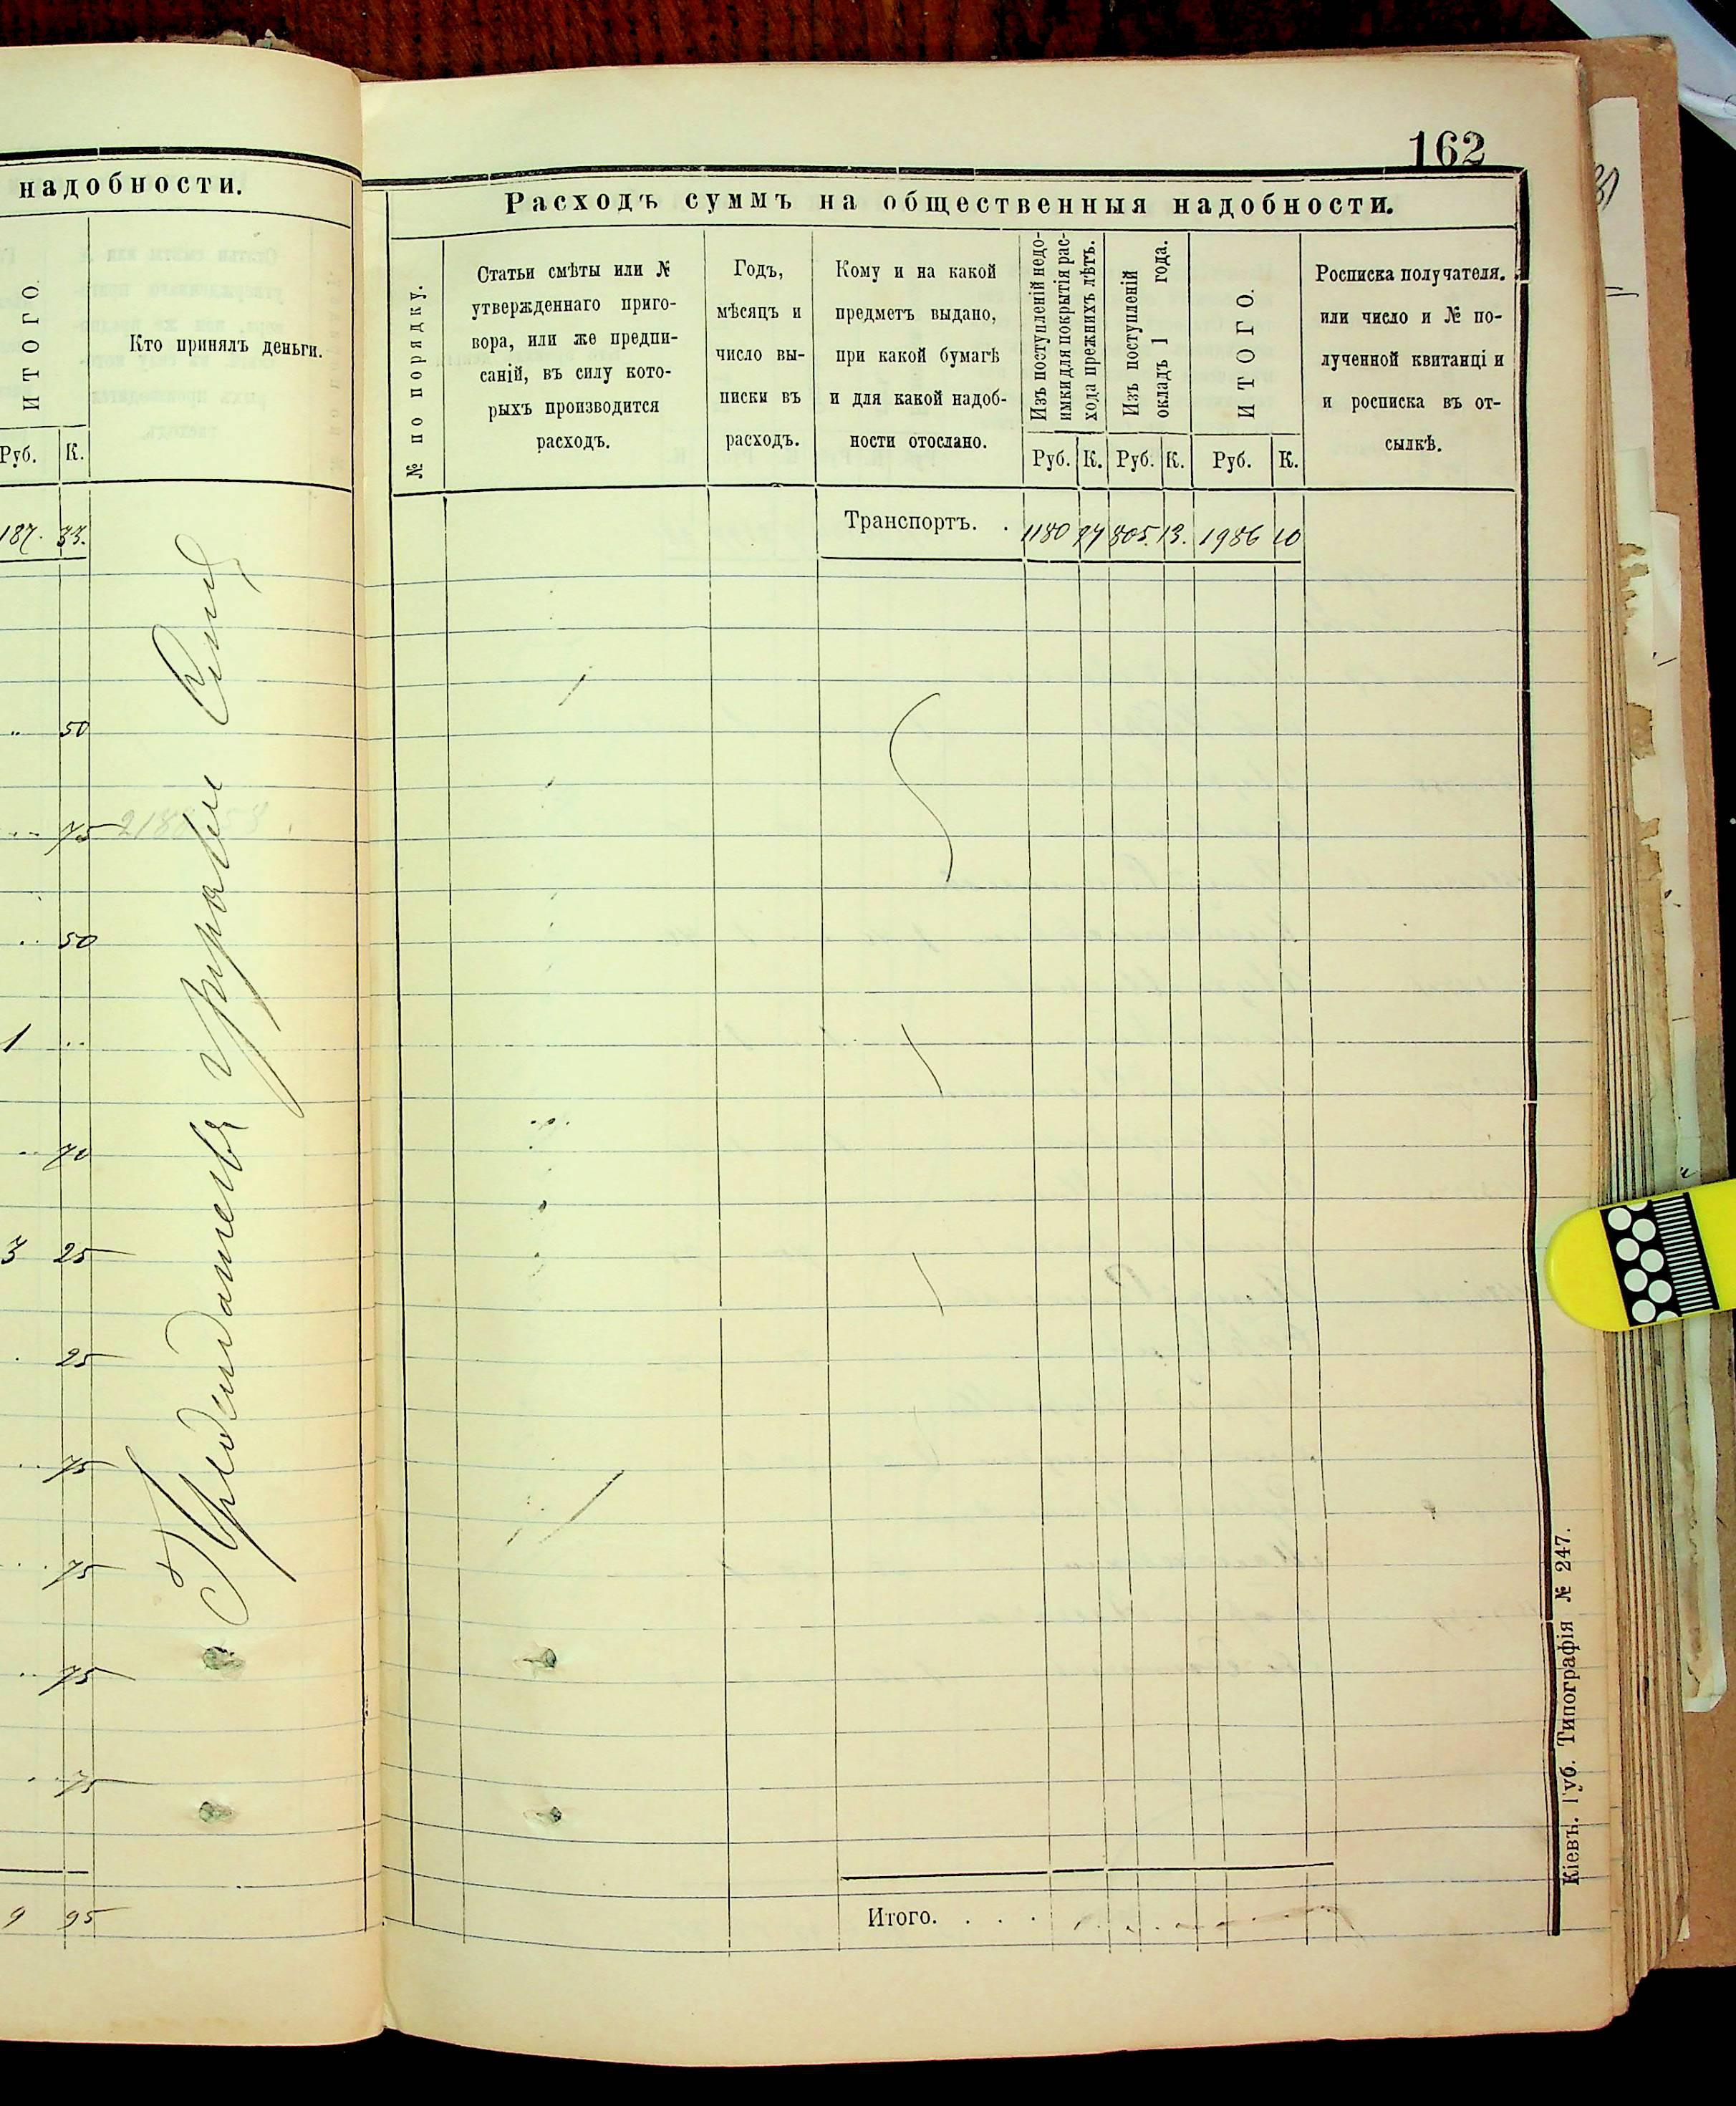 надобности.
ИТОГО.
Кто принялъ деньги.
Руб. К.
187. 33.
" 50
75
50
1 ..
70
3 25
25
75
75
75
75
9 95
162
Расходъ суммъ на общественныя надобности.
№ по порядку.
Статьи смѣты или №
утвержденнаго приго-
вора, или же предпи-
саній, въ силу кото-
рыхъ производится
расходъ.
Годъ,
мѣсяцъ и
число вы-
писки въ
расходъ.
Кому и на какой
предметъ выдано,
при какой бумагѣ
и для какой надоб-
ности отослано.
Изъ поступленій недо-
имки для покрытія рас-
хода прежнихъ лѣтъ.
Изъ поступленій
окладъ 1 года.
ИТОГО.
Росписка получателя.
или число и № по-
лученной квитанціи
и росписка въ от-
сылкѣ.
Руб. К. Руб. К. Руб. К.
Транспортъ. . 1180 97 805. 13. 1986 10
Итого. . . .
Кіевъ. Губ. Типографія № 247.